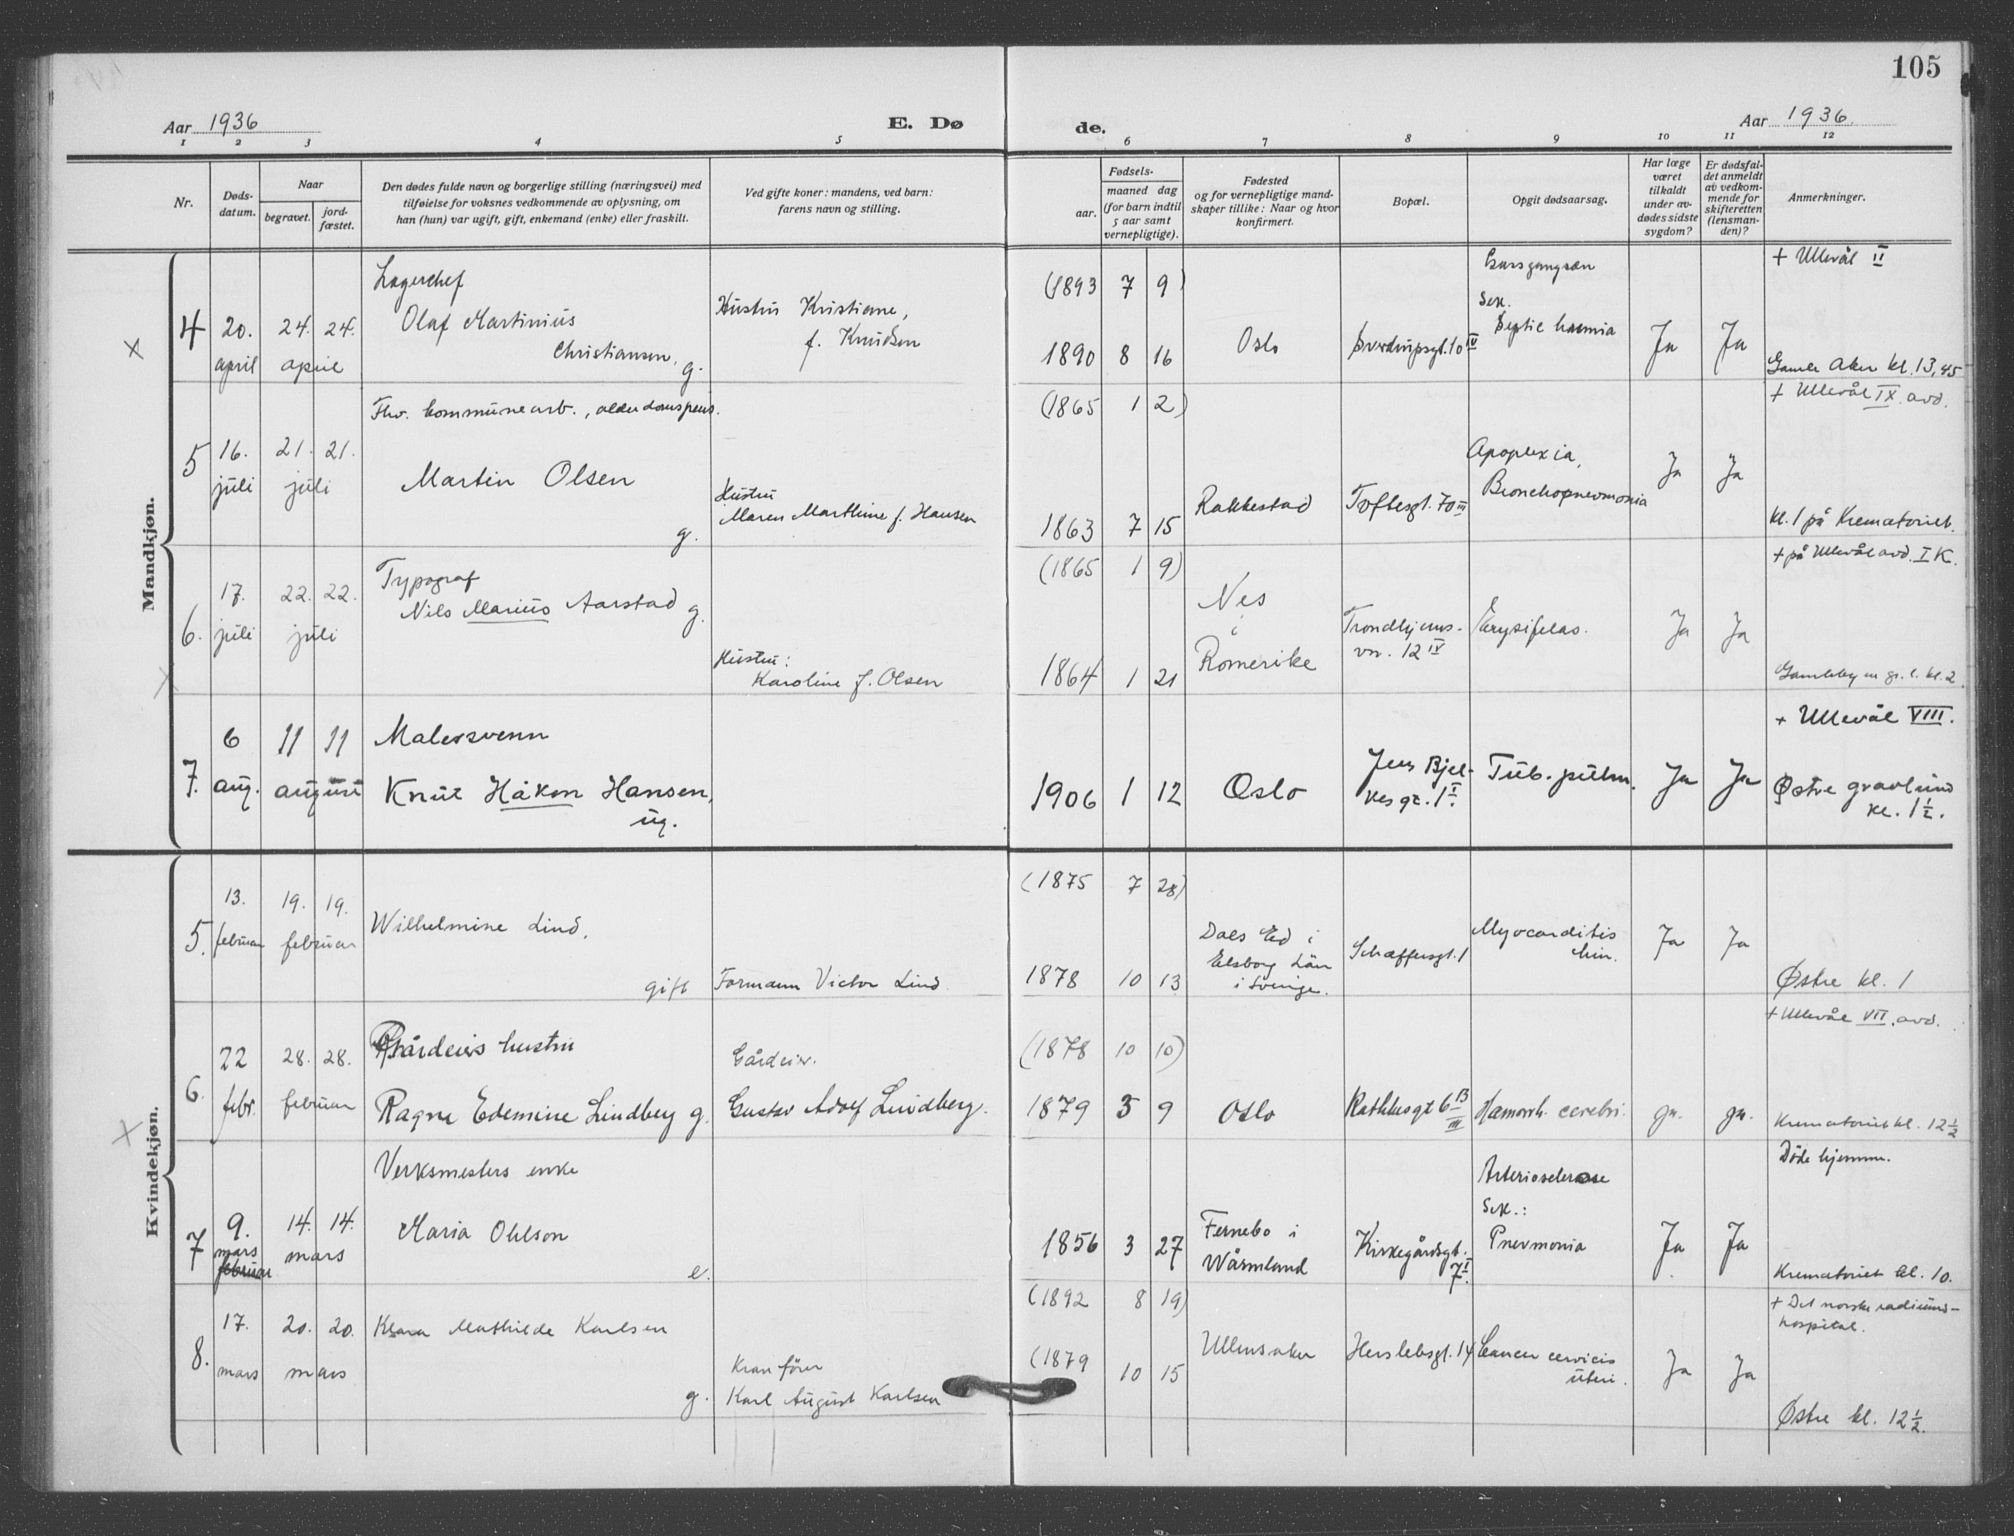 105
Aar 1936
E. Dø
de.
Aar 1936
1 2 3 4 5 6 7 8 9 10 11 12
Nr.
Døds-
datum.
Naar
begravet.
jord-
fæstet.
Den dødes fulde navn og borgerlige stilling (næringsvei) med
tilføielse for voksnes vedkommende av oplysning, om
han (hun) var ugift, gift, enkemand (enke) eller fraskilt.
Ved gifte koner: mandens, ved barn:
farens navn og stilling.
Fødsels-
aar.
maaned dag
(for barn indtil
5 aar samt
vernepligtige).
Fødested
og for vernepligtige mand-
skaper tillike: Naar og hvor
konfirmert.
Bopæl.
Opgit dødsaarsag.
Har læge
været
tilkaldt
under av-
dødes sidste
sygdom?
Er dødsfal-
det anmeldt
av vedkom-
mende for
skifteretten
(lensman-
den)?
Anmerkninger.
Mandkjøn.
+ Ullevål II
Lagerchef
(1893 7 9)
Sek.
4 20. 24. 24.
Olaf Martinius
Hustru Kristiane,
Septic hæmia
april april
Christiansen, g.
f. Knudsen
1890 8 16
Oslo
Sverdrupsgt. 10 IV
Ja Ja
Gamle Aker kl. 13,45
Fhv. kommunearb., alderdomspens.
(1865 1 2)
+ Ullevål IX. avd.
5 16. 21. 21.
juli juli
Martin Olsen
g.
Hustru
Maren Marthine f. Hansen
1863 7 15
Rakkestad
Toftesgt. 70 III
Apoplexia,
Bronchopneumonia
Ja Ja
kl. 1 på Krematoriet.
(1865 1 9)
+ på Ullevål avd. I K.
6. 17. 22. 22.
juli juli
Typograf
Nils Marius Aarstad g.
Hustru:
Karoline f. Olsen
1864 1 21
Nes
i
Romerike
Trondhjems-
vn. 12 IV
Erysipelas.
Ja Ja
Gamleby n gr. l. kl. 2.
+ Ullevål VIII.
7. 6 11 11
aug. august
Malersvenn
Knut Håkon Hansen,
ug.
1906 1 12
Oslo
Jens Bjel-
kes gt. 1 I.
Tub. pulm.
Ja Ja
Østre gravlund
kl. 1 1/2.
Kvindekjøn.
(1875 7 28)
5. 13. 19. 19.
februar februar
Wilhelmine Lind,
gift
Formann Victor Lind
1878 10 13
Dals Ed i
Elsborg Län
i Sverige.
Schæffersgt. 1
Myocarditis
Ja Ja
Østre kl. 1
+ Ullevål VII. avd.
(1878 10 10)
6. 22 28. 28.
febr. februar
Gårdeiers hustru
Ragna Edemine Lindberg g.
Gårdeier.
Gustav Adolf Lindberg.
1879 3 9
Oslo
Rathkesgt 6 B
III
Hæmorrh. cerebri.
ja. ja.
Krematoriet kl. 12 1/2
Døde hjemme.
7 9. 14. 14.
mars mars
februar
Verksmesters enke
Maria Ohlson
e.
1856 3 27
Fernebo i
Wärmland
Kirkegårdsgt.
7 I.
Arteriosclerose
Sek.:
Pnevmonia
Ja Ja
Krematoriet kl. 10.
(1892 8 19)
+ Det norske radiums-
hospital.
8. 17. 20. 20.
mars mars
Klara Mathilde Karlsen
g.
Kranfører
Karl August Karlsen
(1879 10 15
Ullensaker
Herslebsgt. 14
Cancer cervicis
uteri.
Ja Ja
Østre kl. 12 1/2.